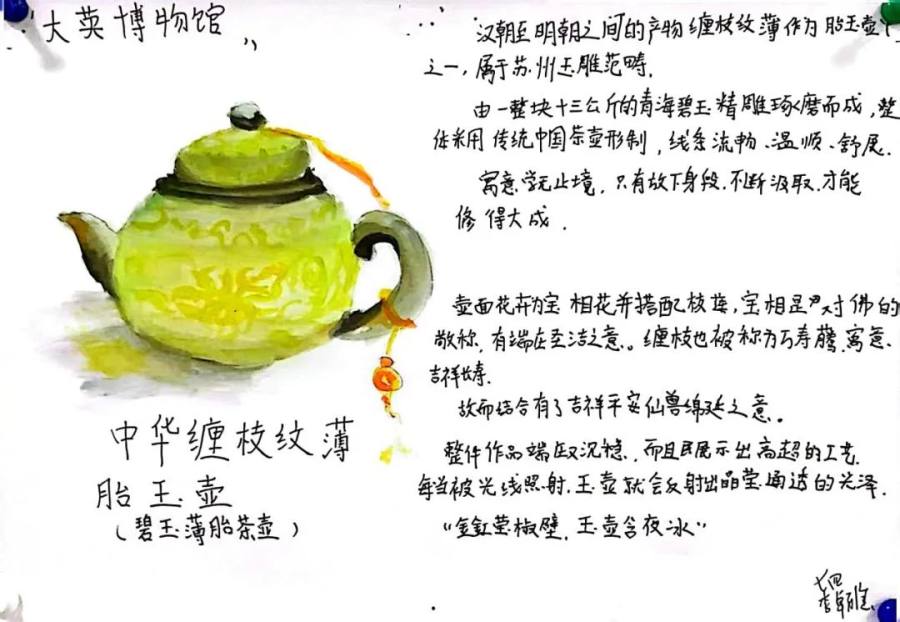 大英博物馆
中华缠枝纹薄
胎玉壶
(碧玉薄胎茶壶)
汉朝至明朝之间的产物缠枝纹薄作为胎玉壶
之一,属于苏州玉雕范畴.
由一整块十三公斤的青海碧玉精雕琢磨而成,整
体采用传统中国茶壶形制,线条流畅、温顺、舒展.
寓意学无止境,只有放下身段.不断汲取.才能
修得大成.
壶面花卉为宝相花并搭配枝蔓,宝相是对佛的
敬称,有端庄圣洁之意。缠枝也被称为万寿藤,寓意
吉祥长寿.
故而结合有了吉祥平安仙兽绵延之意。
整件作品端庄又沉稳,而且展示出高超的工艺.
每当被光线照射,玉壶就会反射出晶莹通透的光泽.
“釭莹椒壁,玉壶含夜冰”
七四